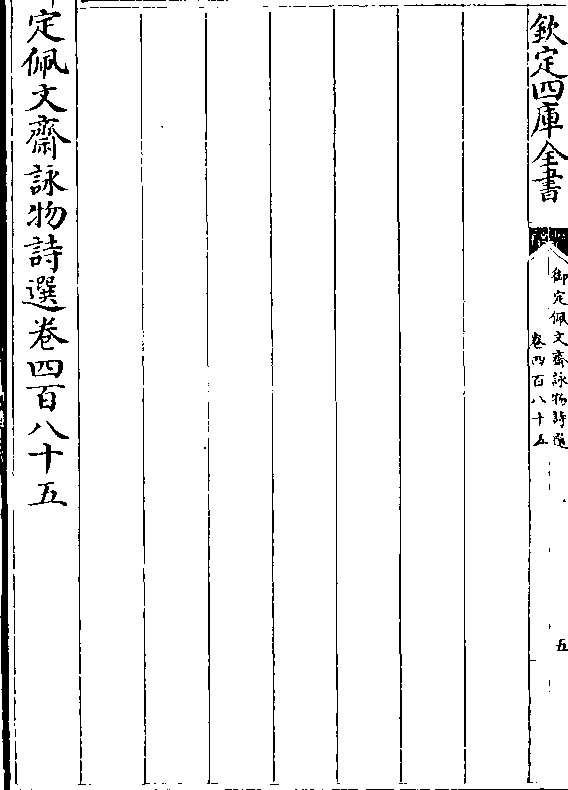 欽定四庫全書
御定佩文齋詠物詩選
卷四百八十五
五
定佩文齋詠物詩選卷四百八十五